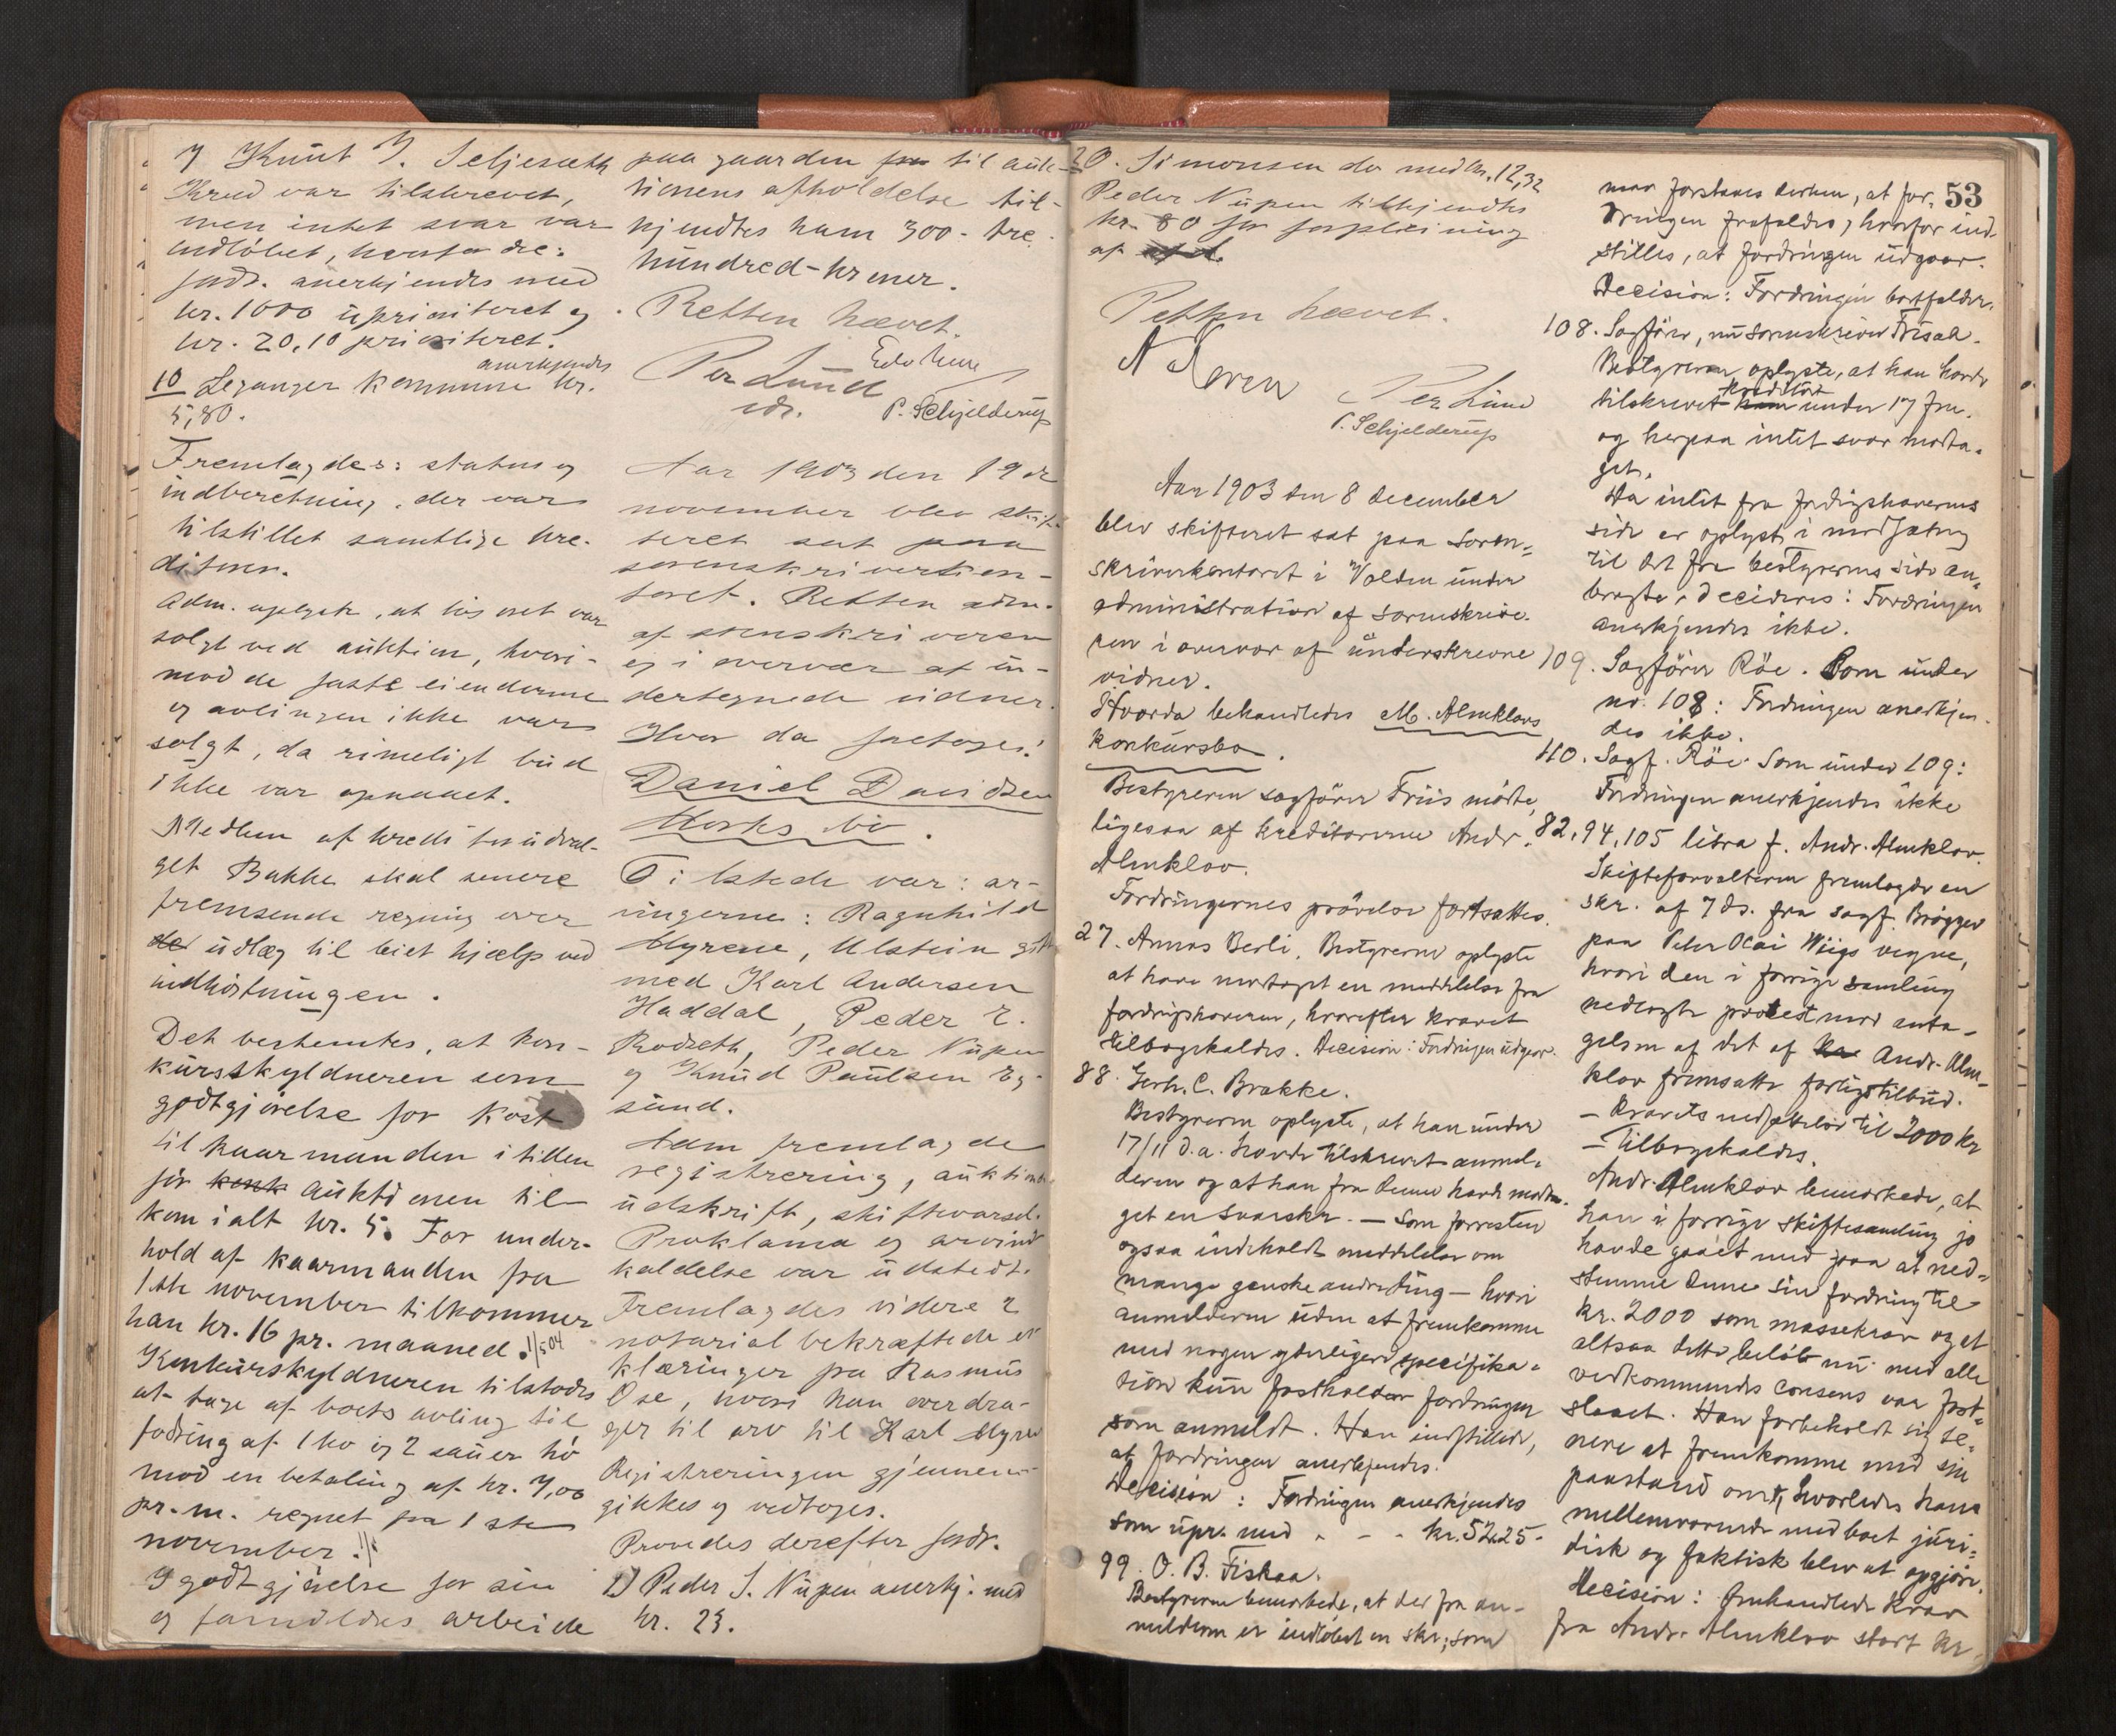 7 Knut J. Seljesæth
Krud var tilskrevet,
men intet svar var
indløbet, hvorfor de:
fodr. anerkjendes med
kr. 1000 uprioriteret og
kr. 20,10 prioriteret.
anerkjendes
10 Leganger kommune kr.
5,80.
Fremlagdes: status og
indberetning, der var
tilstillet samtlige kre-
ditorer.
Adm. oplyste, at løsøret var
solgt ved auktion, hvori-
mod de faste eiendomme
og avlingen ikke var
solgt, da rimeligt bud
ikke var opnaaet.
Medlem af kreditorudval-
get Bakke skal senere
fremsende regning over
udlæg til leiet hjælp ved
indhøstningen.
Det bestemtes, at kon-
kursskyldneren som
godtgjørelse for kost
til kaarmanden i tiden
før auktionen til-
kom ialt kr. 5. For under-
hold af kaarmanden fra
1ste november tilkommer
han kr. 16 pr. maaned.
Konkursskyldneren tilstodes
at tage af boets avling til
fodring af 1 ko og 2 sauer hø
mod en betaling af kr. 7,00
pr. m. regnet fra 1ste
november.
I godtgjørelse for sin
og famildes arbeide
paa gaarden til auk-
tionens afholdelse til-
kjendtes ham 300- tre
hundred-kroner.
Retten hævet.
Per Lund
P. Schjelderup
Aar 1903 den 19de
november blev skif-
teret sat paa
sorenskriverkon-
toret. Retten adm.
af sorenskriveren
og i overvær af un-
dertegnede vidner.
Hvor da foretoges:
Daniel Davidsen
Morks bo.
Tilstede var: ar-
vingerne: Ragnhild
Myrene, Ulstein gift
med Karl Andersen
Haddal, Peder R.
Rodseth, Peder Nupen
og Knud Paulsen Eg-
sund.
Adm fremlagde
registrering, auktions
udskrift, skiftevarsel.
Proklama og arvind
kaldelse var udstedt.
Fremlagdes videre 2
notarial bekræftede er
klæringer fra Rasmus
Ose, hvori han overdra-
ger til arv til Karl Myren
Registreringen gjennem-
gikkes og vedtoges.
Prøvedes derefter fordr.
1) Peder S. Nupen anerkj. med
kr. 23.
2 O. Simonsen do med kr. 12,32
Peder Nupen tilkjendtes
kr. 80 for forpleining
af
Retten hævet.
Per Lund
P. Schjelderup
Aar 1903 den 8 december
blev skifteret sat paa soren-
skriverkontoret i Volden under
administration af sorenskrive-
ren i overvær af underskrevne
vidner.
Hvorda behandledes M. Almklovs
konkursbo.
Bestyreren sagfører Friis mødte,
ligesaa af kreditorerne Andr.
Almklov.
Fordringernes prøvelse fortsattes.
27. Annas Berli. Bestyreren oplyste
at have modtaget en meddelelse fra
fordringshaveren, hvorefter kravet
tilbagekaldes. Decision: Fordringen udgaar.
88. Gerh. C. Brakke.
Bestyreren oplyste, at han under
17/11 d.a. havde tilskrevet anmel-
deren og at han fra denne havde modta-
get en svarskr. — som forresten
ogsaa indeholdt meddelelse om
mange ganske andre ting — hvori
anmelderen uden at fremkomme
med nogen yderligere specifika-
tion kun fastholder fordringen
som anmeldt. Han indstillede,
at fordringen anerkjendes.
Decision: Fordringen anerkjendes
som upr. med - - - kr. 52.25.
99. O. B. Fiskaa.
Bestyreren bemærkede, at der fra an-
melderen er indløbet en skr., som
53
maa forstaaes derhen, at for-
dringen frafaldes, hvorfor ind-
stilles, at fordringen udgaar.
Decision: Fordringen bortfalder.
108. Sagfører, nu sorenskriver Frisak.
Bestyreren oplyste, at han havde
kreditor
tilskrevet under 17 f.m.
og herpaa intet svar modta-
get.
Da intet fra fordringshaverens
side er oplyst i modsætning
til det fra bestyrerens side an-
bragte, decideres: Fordringen
anerkjendes ikke.
109. Sagfører Röe. Som under
no. 108: Fordringen anerkjen-
des ikke.
110. Sagf. Röe. Som under 109:
Fordringen anerkjendes ikke
82, 94, 105 litra f. Andr. Almklov.
Skifteforvalteren fremlagde en
skr. af 7 ds. fra sagf. Brøgger
paa Peter Olai Wiigs vegne,
hvori den i forrige samling
nedlagte protest mod anta-
gelsen af det af Andr. Alm-
klov fremsatte forligstilbud.
— kravets nedsættelse til 2000 kr
— tilbagekaldes.
Andr. Almklov bemærkede, at
han i forrige skiftesamling jo
havde gaaet med paa at ned-
stemme denne sin fordring til
kr. 2000 som massekrav og at
altsaa dette beløb nu med alle
vedkommendes consens var fast-
slaaet. Han forbeholdt sig se-
nere at fremkomme med sin
paastand om, hvorledes hans
mellemværende med boet juri-
disk og faktisk blev at opgjøre.
Decision: Omhandlede krav
fra Andr. Almklov stort kr.